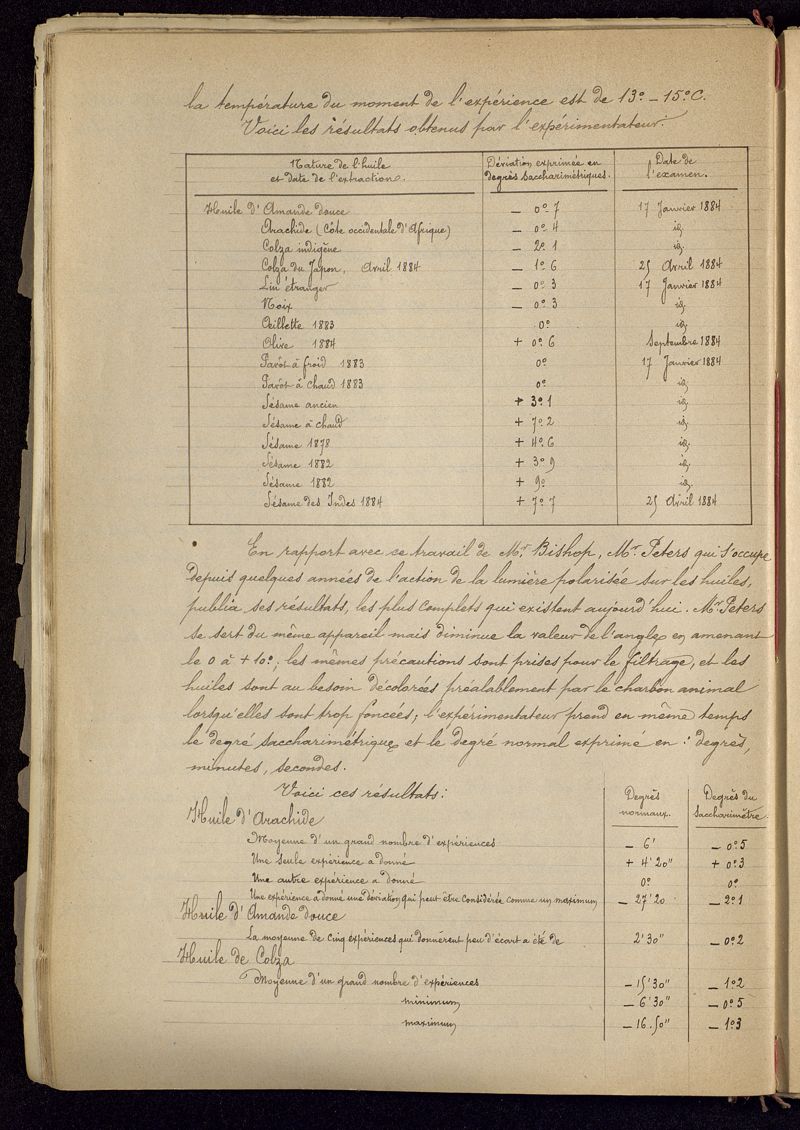 la température du moment de l'expérience est de 13° – 15° C.
Voici les résultats obtenus par l'expérimentateur.
Nature de l'huile Déviation exprimée en Date de
et date de l'extraction. degrés saccharimétriques. l'examen.
Huile d'Amande douce – 0° 7 17 Janvier 1884
Arachide (Côte occidentale d'Afrique) – 0° 4 id
Colza indigène – 2° 1 id
Colza du Japon, Avril 1884 – 1° 6 25 Avril 1884
Lin étranger – 0° 3 17 Janvier 1884
Noix – 0° 3 id
Œillette 1883 0° id
Olive 1884 + 0° 6 Septembre 1884
Pavôt à froid 1883 0° 17 Janvier 1884
Pavôt à chaud 1883 0° id
Sésame ancien + 3° 1 id
Sésame à chaud + 7° 2 id
Sésame 1878 + 4° 6 id
Sésame 1882 + 3° 9 id
Sésame 1882 + 9° id
Sésame des Indes 1884 + 7° 7 25 Avril 1884
En rapport avec ce travail de Mr Bishop, Mr Peters qui s'occupe
depuis quelques années de l'action de la lumière polarisée sur les huiles,
publia ses résultats, les plus complets qui existent aujourd'hui. Mr Peters
se sert du même appareil mais diminue la valeur de l'angle en amenant
le 0 à + 10°; les mêmes précautions sont prises pour le filtrage, et les
huiles sont au besoin décolorées préalablement par le charbon animal
lorsqu'elles sont trop foncées; l'expérimentateur prend en même temps
le degré saccharimétrique et le degré normal exprimé en : degrés,
minutes, secondes.
Voici ces résultats: Degrés Degrés du
normaux. Saccharimètre.
Huile d'Arachide
Moyenne d'un grand nombre d'expériences – 6' – 0° 5
Une seule expérience a donné + 4' 20" + 0° 3
Une autre expérience a donné 0° 0°
Une expérience a donné une déviation qui peut être considérée comme un maximum – 27' 20 – 2° 1
Huile d'Amande douce
La moyenne de cinq expériences qui donnèrent peu d'écart a été de 2' 30" – 0° 2
Huile de Colza
Moyenne d'un grand nombre d'expériences – 15' 30" – 1° 2
minimum – 6' 30" – 0° 5
maximum – 16.50" – 1° 3